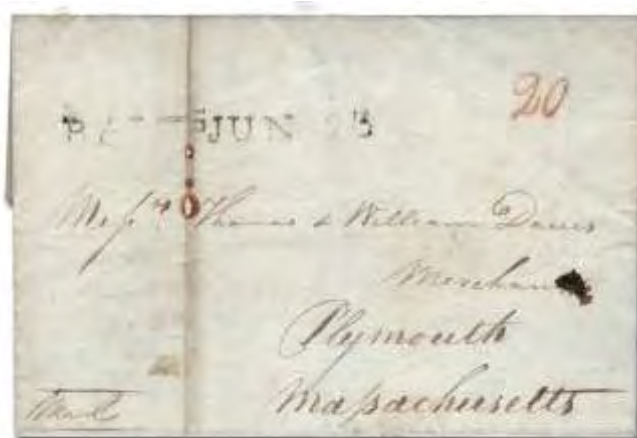 20
JUN
Thomas & William Davis
Merchants
Plymouth
Massachusetts